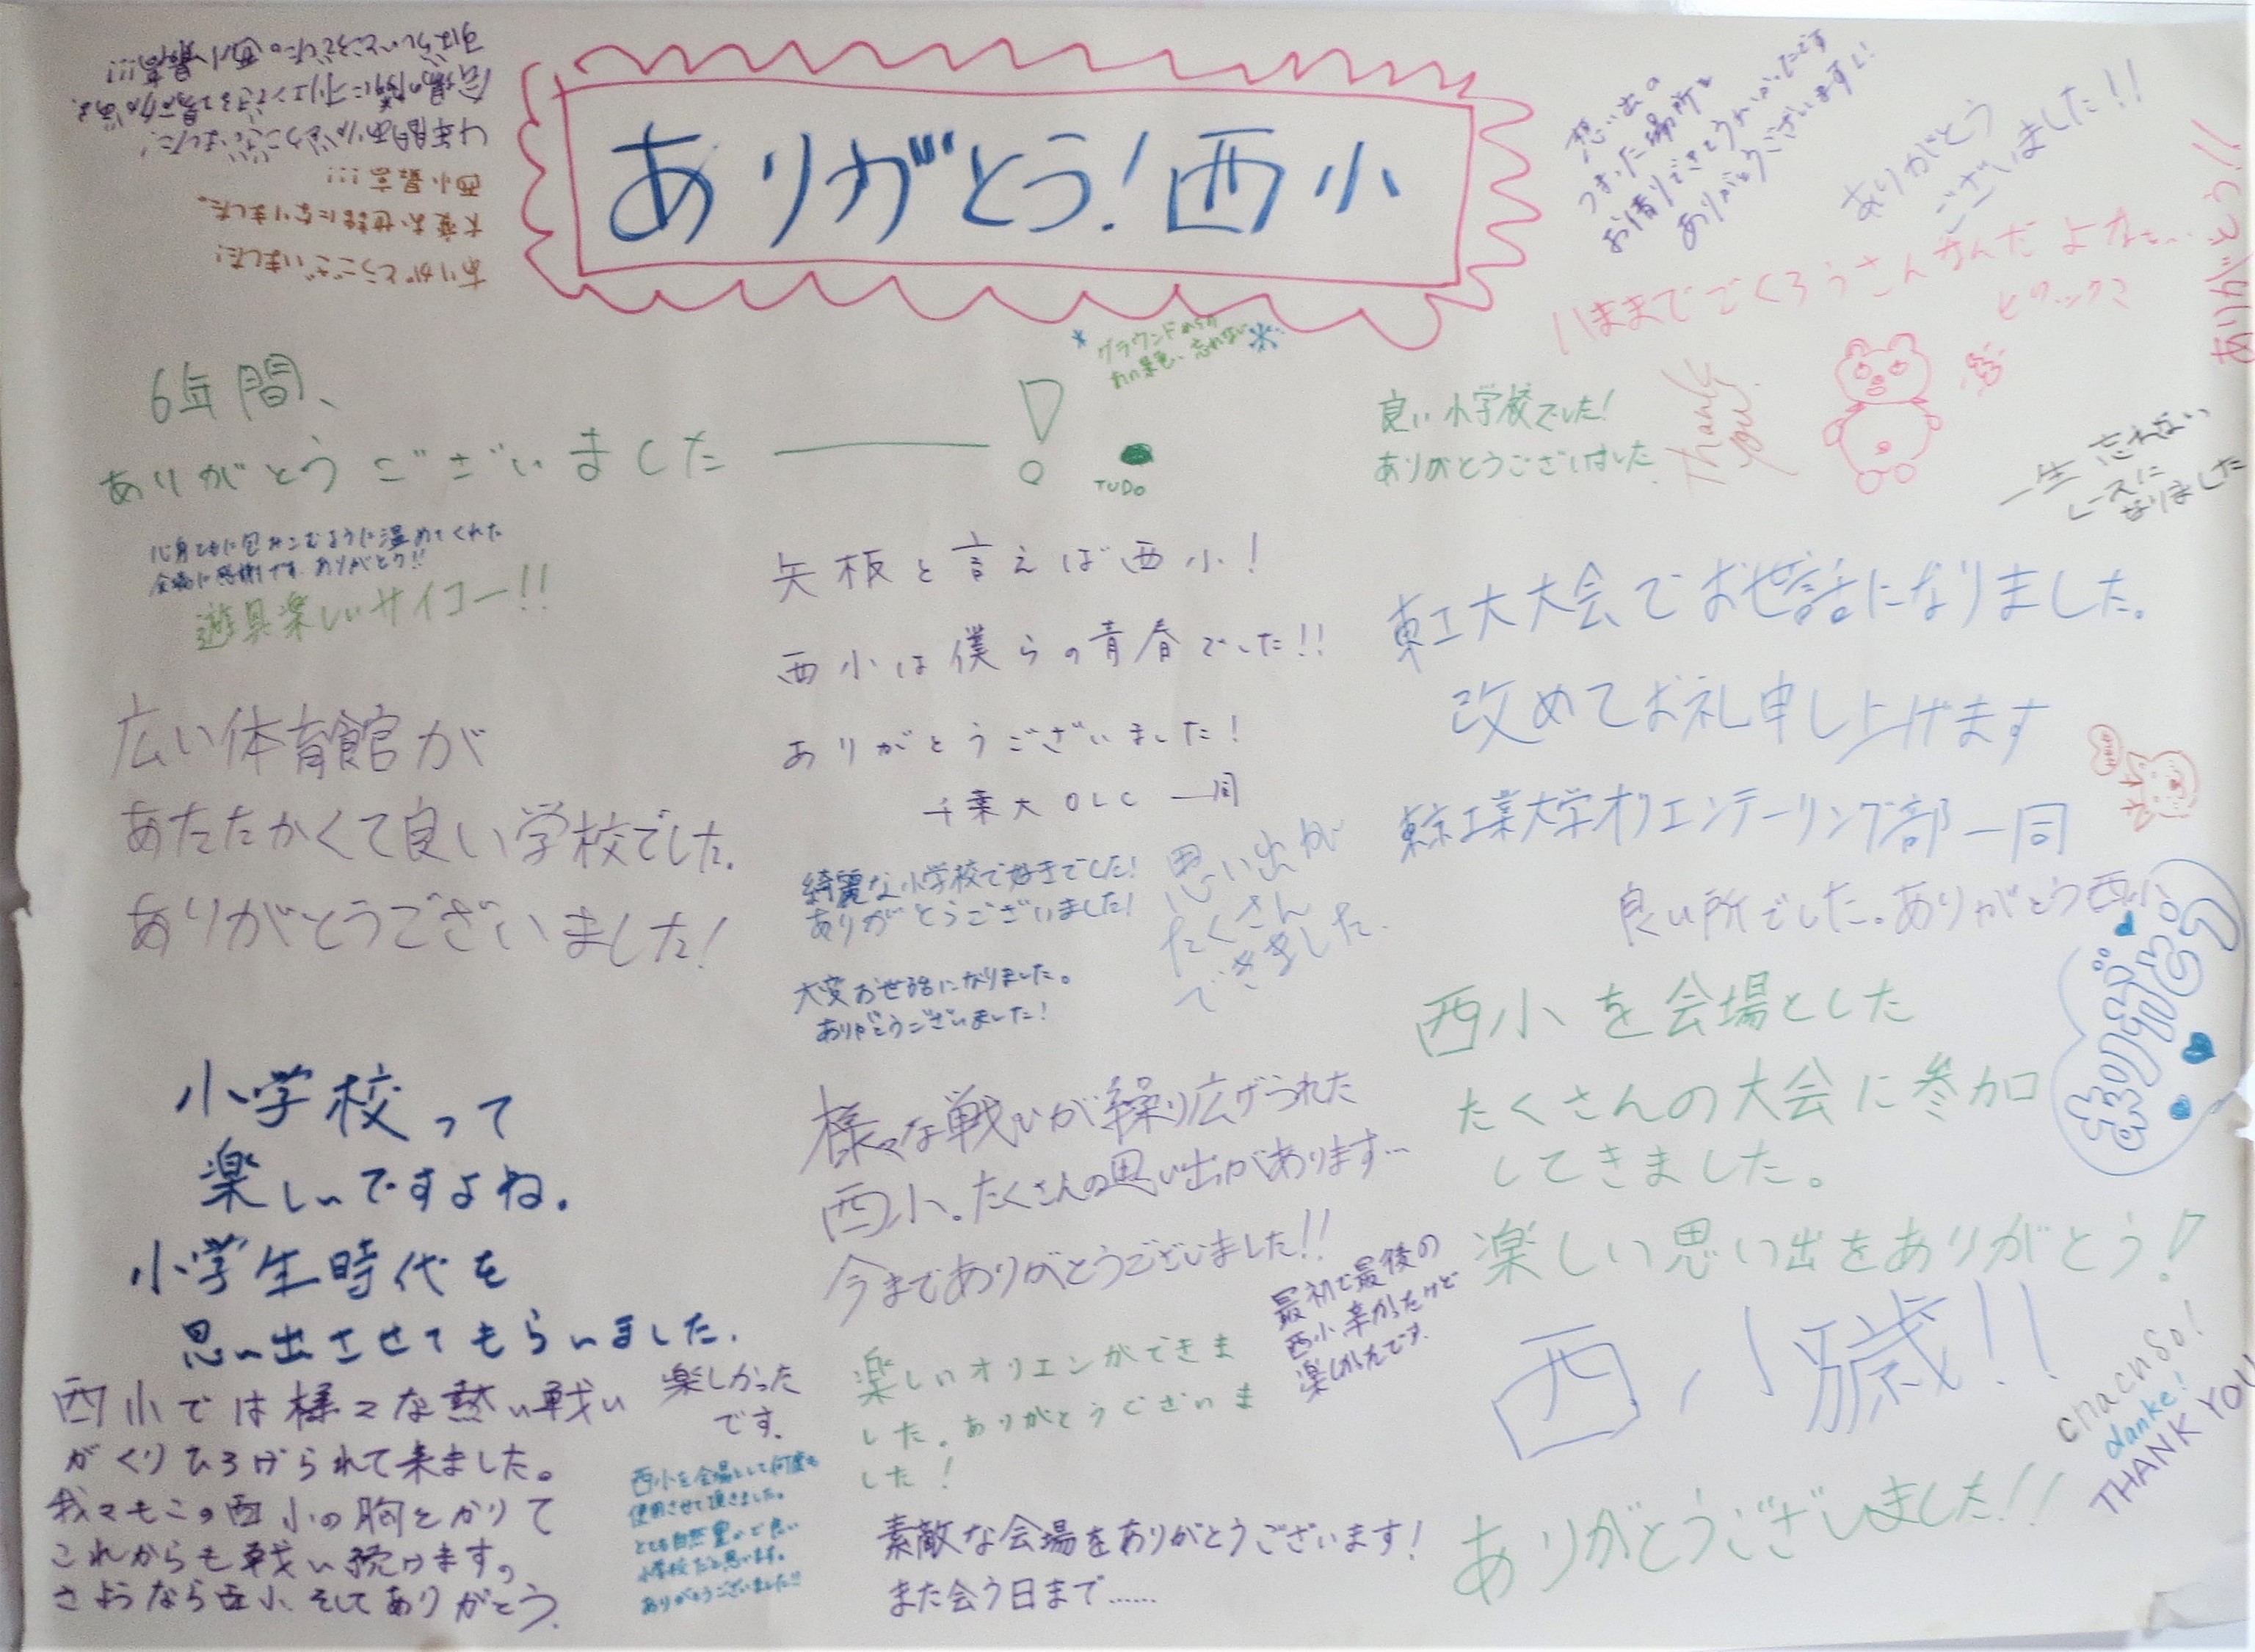 ありがとう！西小
すばらしいところでした。西小最高!!!
会場の隣にオリエンできる場所がある。
4年間ありがとうございました!
西小最高!!!
大変お世話になりました。
ありがとうございました!
想い出の
つまった場所を
お借りできてうれしかったです
ありがとうございますし!
ありがとう
ございました!!
ありがとう!!
いままでごくろうさんなんだよなぁ…
グラウンドからの
あの景色、忘れない
6年間、
ありがとうございました――!
TUDo
良い小学校でした!
ありがとうございました.
Thank
you
一生忘れない
レースに
なりました
心身ともに包みこむように温めてくれた
会場に感謝です. ありがとう!!
遊具楽しいサイコー!!
矢板と言えば西小!
西小は僕らの青春でした!!
ありがとうございました!
千葉大OLC 一同
東工大大会でお世話になりました。
改めてお礼申し上げます
東京工業大学オリエンテーリング部一同
広い体育館が
あたたかくて良い学校でした.
ありがとうございました!
綺麗な小学校で好きでした!
ありがとうございました!
思い出が
たくさん
できました.
大変お世話になりました。
ありがとうございました!
良い所でした。ありがとう西小
西小を会場とした
たくさんの大会に参加
してきました。
楽しい思い出をありがとう!
小学校って
楽しいですよね.
小学生時代を
思い出させてもらいました.
様々な戦いが繰り広げられた
西小。たくさんの思い出があります…
今までありがとうございました!!
最初で最後の
西小、辛かったけど
楽しかったです.
西小では様々な熱い戦い
がくりひろげられて来ました。
我々もこの西小の胸をかりて
これからも戦い続けます。
さようなら西小、そしてありがとう.
楽しかった
です.
西小を会場として何度も
使用させて頂きました。
とても自然豊かで良い
小学校だと思います。
ありがとうございました!!
楽しいオリエンができま
した. ありがとうございま
した!
素敵な会場をありがとうございます!
また会う日まで……
西小!!
ありがとうございました!!
danke!
THANK YOU